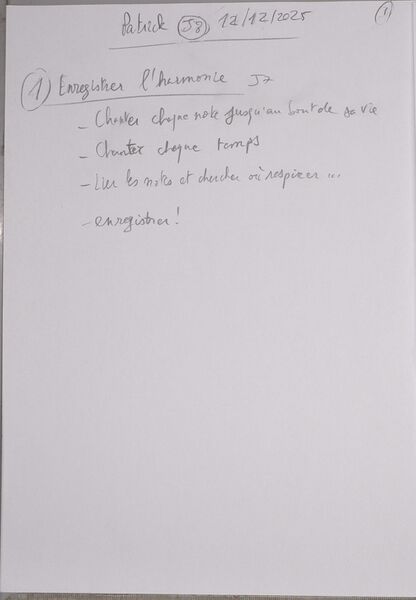 Patrick J8 12/12/2025
1
1) Enregistrer l'harmonie J7
- Chanter chaque note jusqu'au bout de sa vie
- Chanter chaque temps
- Lier les notes et chercher où respirer ...
- enregistrer !